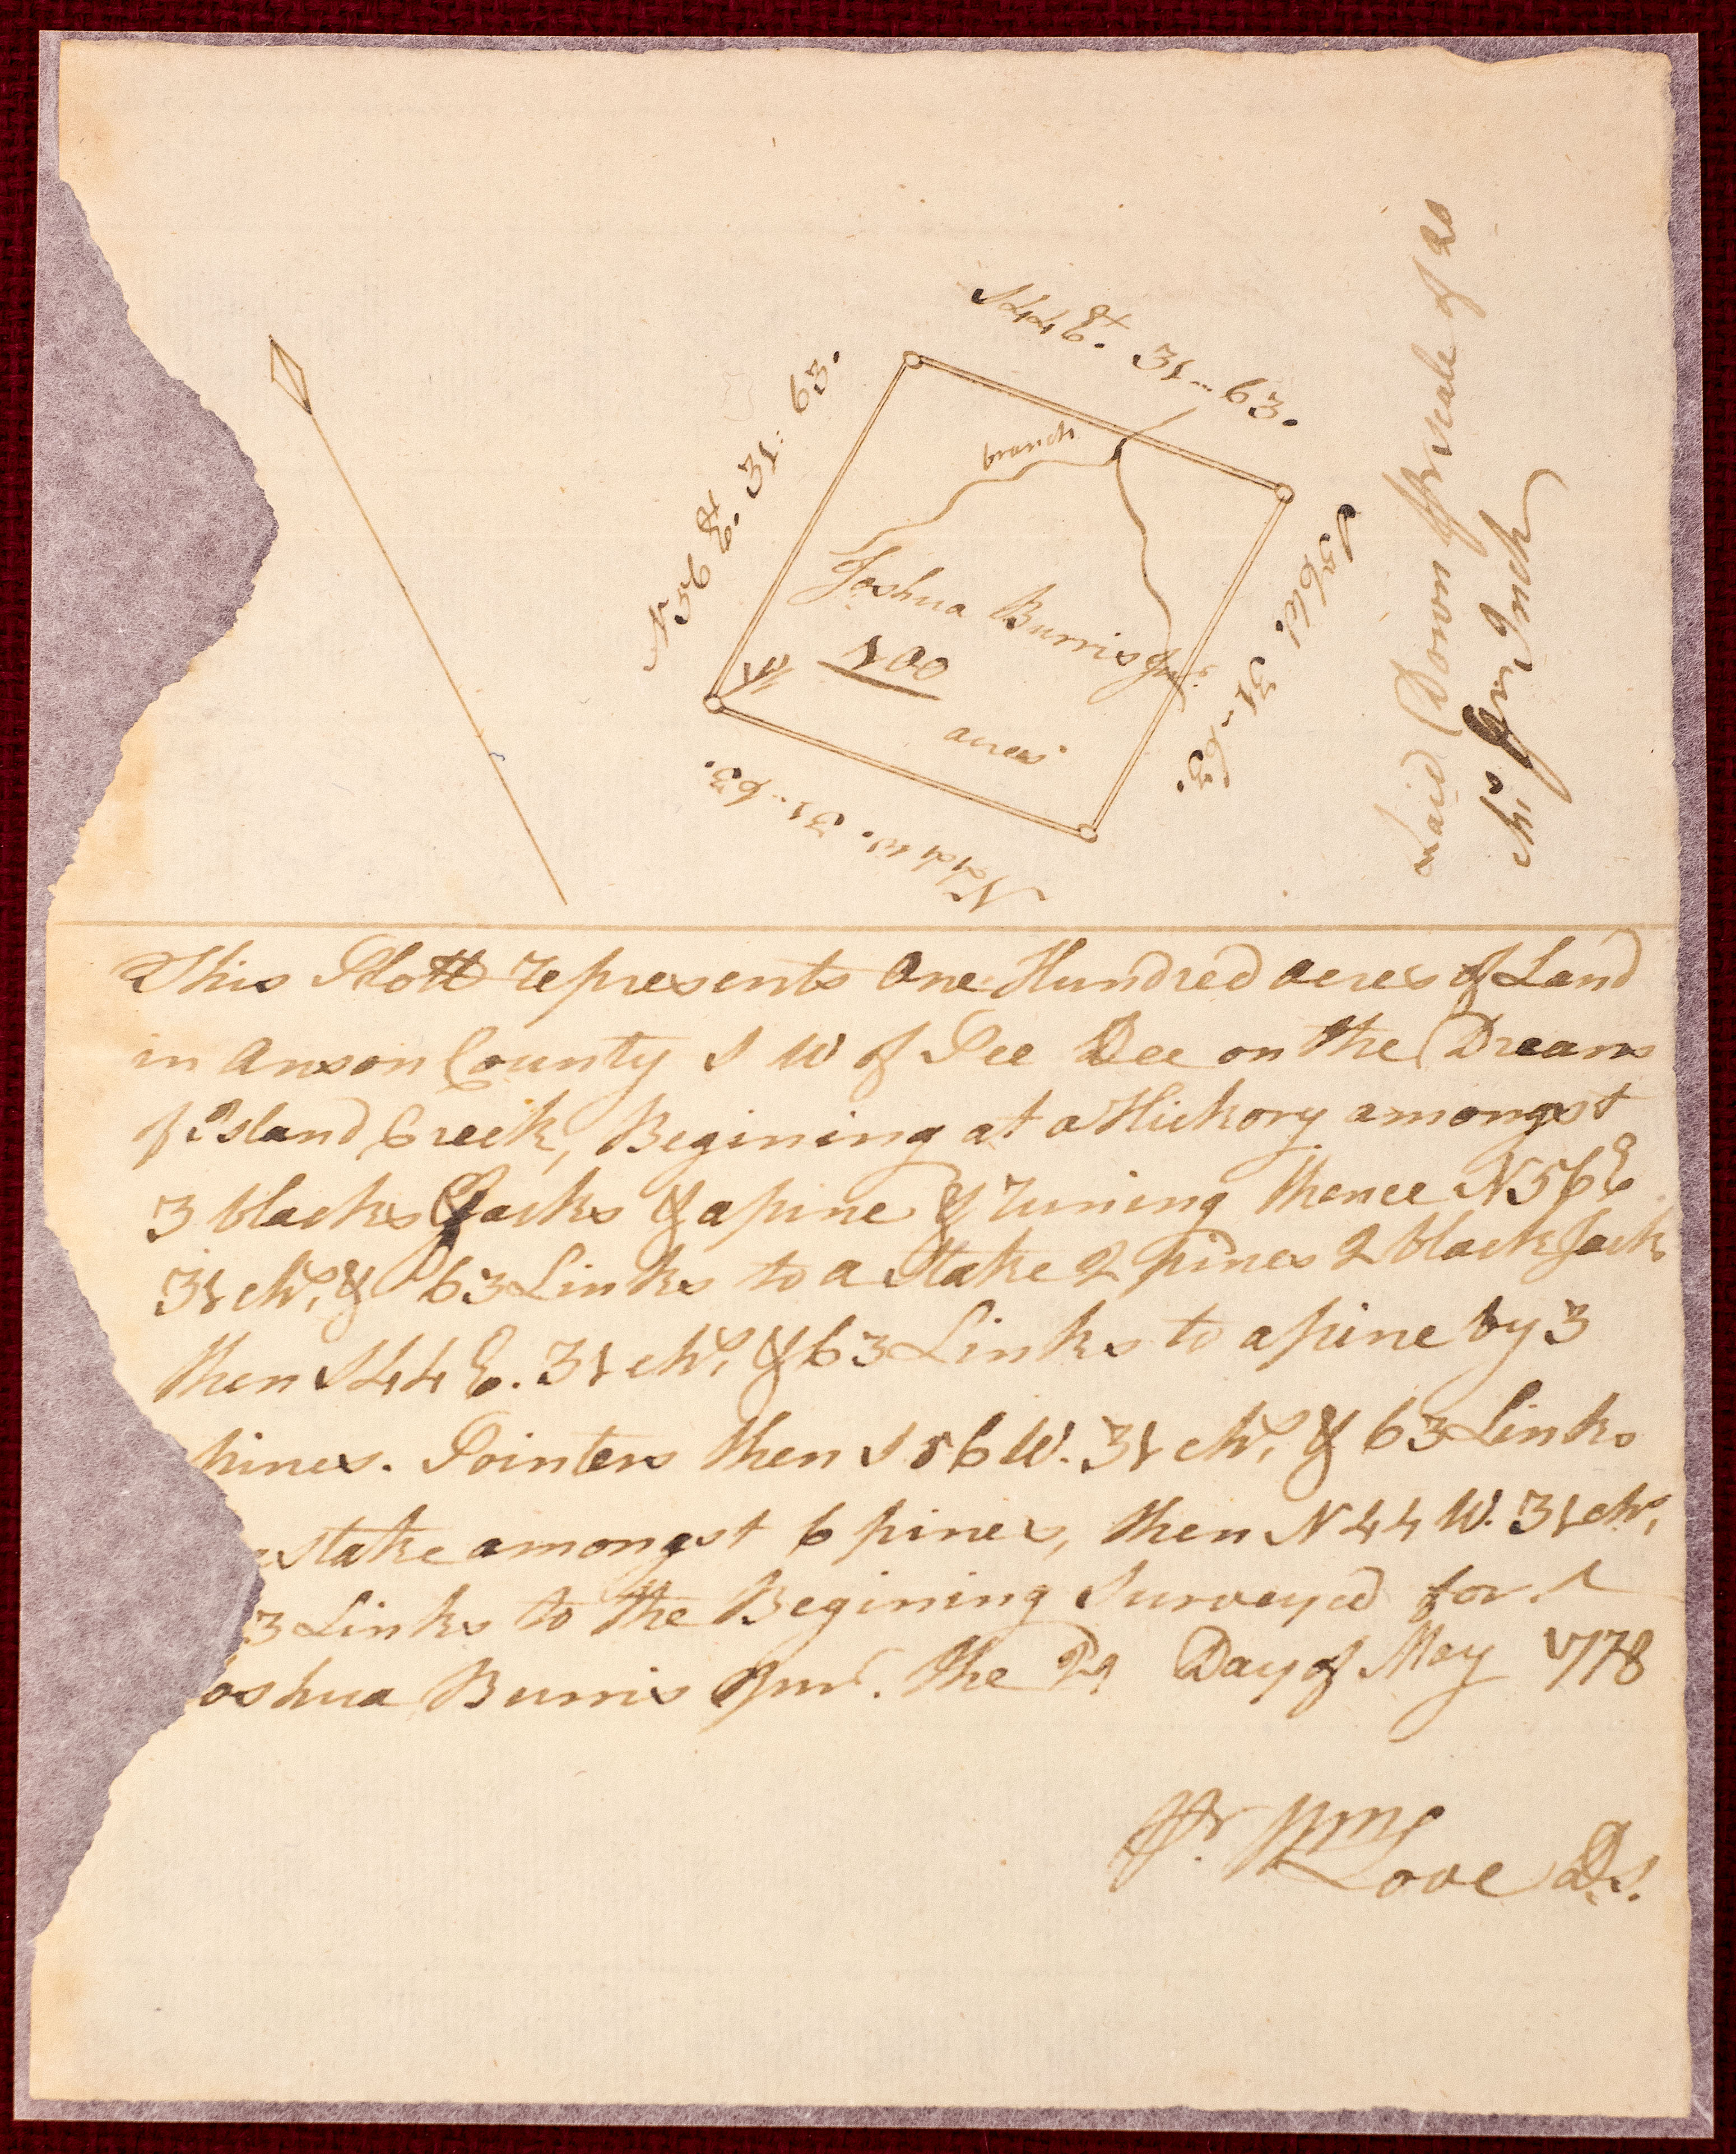 S44 Et. 31--63.
N56 Et. 31: 63.
branch
Joshua Burris Junr.
100
acres
S56W. 31--63.
N44W. 31--63.
Laid Down pr scale of 20
chs pr Inch
This Plott represents One Hundred acres of Land
in Anson County S W of Pee Dee on the Dreans
of Island Creek, Begining at a Hickory amongst
3 blacks Jacks & a pine & runing thence N56E
31 chs. & 63 Links to a Stake 2 pines 2 black Jack
then S44E. 31 chs. & 63 Links to a pine by 3
pines. Pointers then S56W. 31 chs. & 63 Links
stake amongst 6 pines, then N44W. 31 chs.
3 Links to the Begining Surveyed for
oshua Burris Junr. the Day of May 1778
Pr. Wm Love D.S.